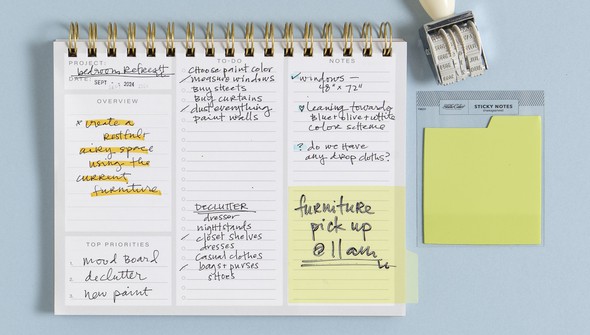 PROJECT:
bedroom Refresh
DATE:
SEPT 2024
OVERVIEW
* create a
restful
airy space
using the
current
furniture
TOP PRIORITIES
1. mood Board
2. declutter
3. new paint
TO-DO
Choose paint color
measure windows
Buy sheets
Buy curtains
dust everything
paint walls
DECLUTTER
dresser
nightstands
closet shelves
dresses
casual clothes
bags + purses
shoes
NOTES
windows —
48" x 72"
leaning towards
blue + olive + white
color scheme
? do we have
any drop cloths?
furniture
pick up
@ 11 am
STICKY NOTES